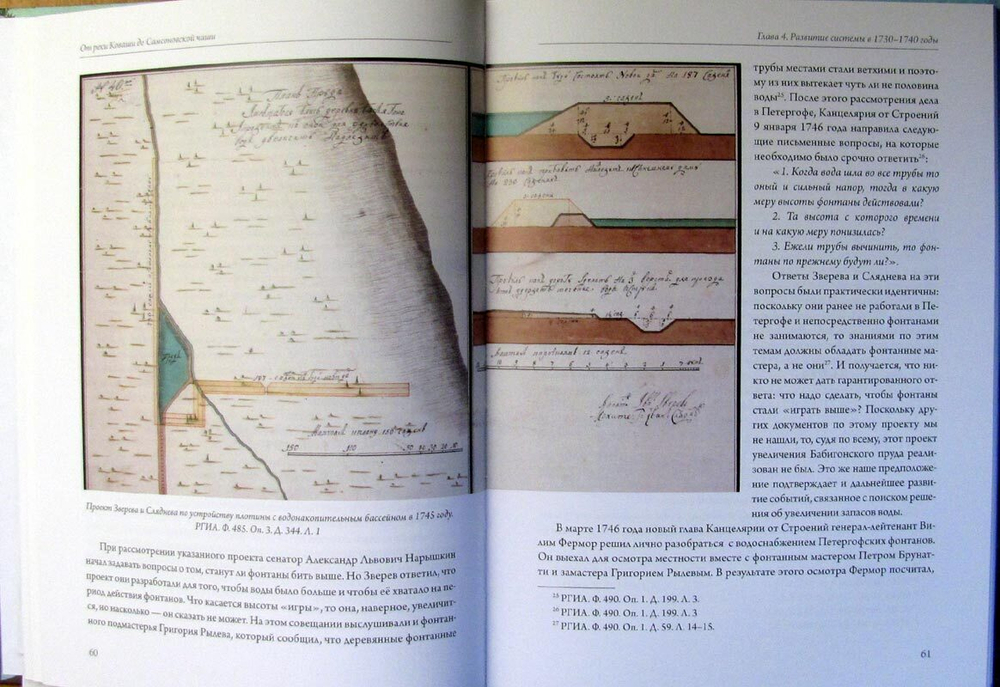 От реки Коваши до Самсоновской чаши
Проект Зверева и Сляднева по устройству плотины с водонакопительным бассейном в 1745 году.
РГИА. Ф. 485. Оп. 3. Д. 344. Л. 1
При рассмотрении указанного проекта сенатор Александр Львович Нарышкин
начал задавать вопросы о том, станут ли фонтаны бить выше. Но Зверев ответил, что
проект они разработали для того, чтобы воды было больше и чтобы её хватало на пе-
риод действия фонтанов. Что касается высоты «игры», то она, наверное, увеличит-
ся, но насколько — он сказать не может. На этом совещании выслушивали и фонтан-
ного подмастерья Григория Рылева, который сообщил, что деревянные фонтанные
60
Глава 4. Развитие системы в 1730–1740 годы
трубы местами стали ветхими и поэто-
му из них вытекает чуть ли не половина
воды²⁵. После этого рассмотрения дела
в Петергофе, Канцелярия от Строений
9 января 1746 года направила следую-
щие письменные вопросы, на которые
необходимо было срочно ответить²⁶:
«1. Когда вода шла во все трубы то
оный и сильный напор, тогда в какую
меру высоты фонтаны действовали?
2. Та высота с которого времени
и на какую меру понизилась?
3. Ежели трубы вычинить, то фон-
таны по прежнему будут ли?».
Ответы Зверева и Сляднева на эти
вопросы были практически идентичны:
поскольку они ранее не работали в Пе-
тергофе и непосредственно фонтанами
не занимаются, то знаниями по этим
темам должны обладать фонтанные ма-
стера, а не они²⁷. И получается, что ни-
кто не может дать гарантированного от-
вета: что надо сделать, чтобы фонтаны
стали «играть выше»? Поскольку дру-
гих документов по этому проекту мы
не нашли, то, судя по всему, этот проект
увеличения Бабигонского пруда реали-
зован не был. Это же наше предположе-
ние подтверждает и дальнейшее разви-
тие событий, связанное с поиском реше-
ния об увеличении запасов воды.
В марте 1746 года новый глава Канцелярии от Строений генерал-лейтенант Ви-
лим Фермор решил лично разобраться с водоснабжением Петергофских фонтанов.
Он выехал для осмотра местности вместе с фонтанным мастером Петром Брунат-
ти и замастера Григорием Рылевым. В результате этого осмотра Фермор посчитал,
²⁵ РГИА. Ф. 490. Оп. 1. Д. 199. Л. 3.
²⁶ РГИА. Ф. 490. Оп. 1. Д. 199. Л. 3
²⁷ РГИА. Ф. 490. Оп. 1. Д. 59. Л. 14–15.
61